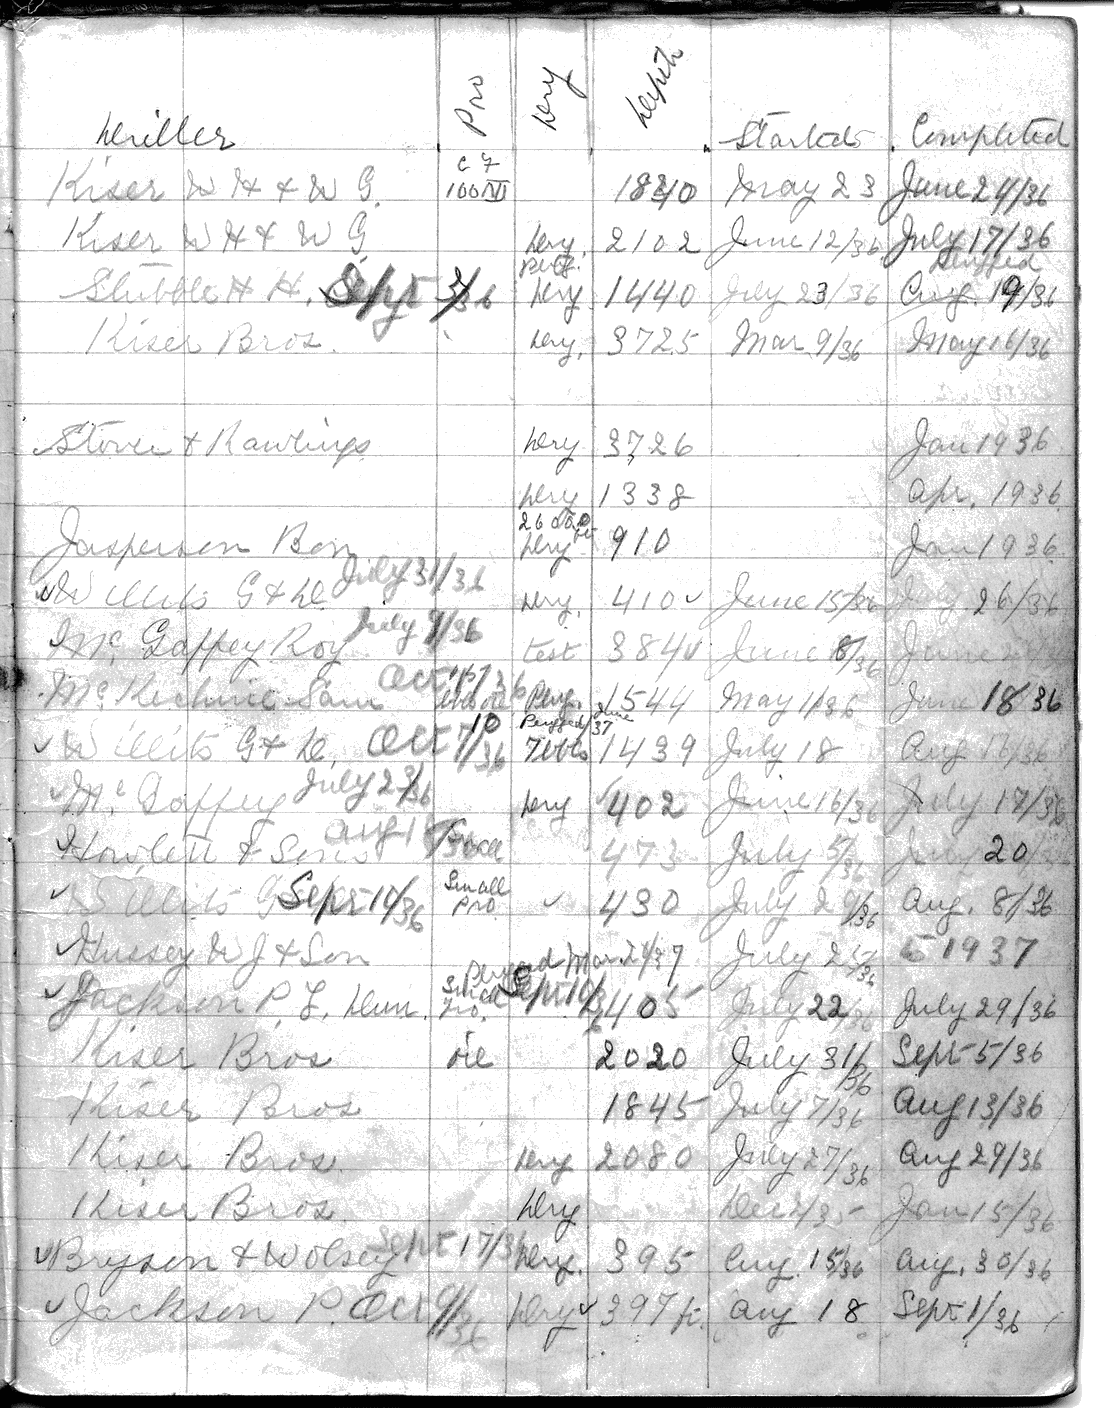 Driller Pro Dry Depth Started Completed
Kiser W H + W G. C F 100 M 1840 May 23 June 24/36
Kiser W H + W G Dry. 2102 June 12/36 July 17/36
Stubble H H. Sept 3/36 Dry 1440 July 23/36 Aug. 19/36
Kiser Bros. Dry. 3725 Mar 9/36 May 16/36
Stover & Rawlings Dry 3726 Jan 1936
Dry 1338 Apr. 1936
Jasperson Ben Dry 910 Jan 1936
Willits G & D. July 31/36 Dry. 410 June 15/36 July 26/36
Mc Gaffey Roy July 9/36 test 384 June 8/36 June
Mc Kechnie Sam Oct 1544 May 1/36 June 18 36
Willits G & D. Oct 7/36 10 Plugged June /37 1439 July 18 Aug
Mc Gaffey July 23/36 Dry 402 June 16/36 July 17/36
Howlett & Sons Aug 473 July 5/36 July 20
Willits G Sept 10/36 Small Pro. 430 July Aug. 8/36
Hussey W J & Son July 1937
Plugged Mar. 37
Jackson P. F. Drum. Small Pro. Sept 10/36 405 July 22/36 July 29/36
Kiser Bros Oil 2020 July 31/36 Sept 5/36
Kiser Bros 1845 July 7/36 Aug 13/36
Kiser Bros. Dry 2080 July 27/36 Aug 29/36
Kiser Bros. Dry Dec 2/35 Jan 15/36
Bryson & Wolsey Sept 17/36 Dry. 395 Aug. 15/36 Aug. 30/36
Jackson P. Oct 9/36 Dry 397 ft. Aug 18 Sept 1/36